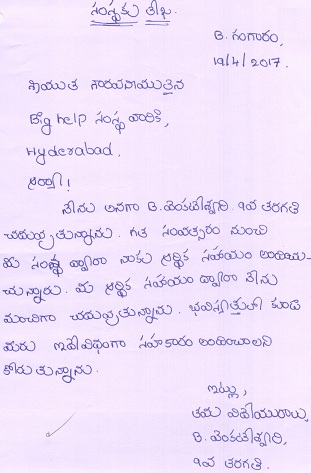 సంస్థకు లేఖ.
B. గంగారం,
19/4/2017.
గౌరవనీయుత్తైన
Big help సంస్థ వారికి,
Hyderabad.
ఆర్యా!
నేను అనగా B. వెంకటేశ్వరి. 9వ తరగతి
చదువుతున్నాను. గత సంవత్సరం నుంచి
మీ సంస్థ ద్వారా నాకు ఆర్థిక సహాయం అందిస-
్తున్నారు. మీ ఆర్థిక సహాయం ద్వారా నేను
మంచిగా చదువుతున్నాను. భవిష్యత్తులో కూడా
మీరు ఇదేవిధంగా సహకారం అందించాలని
కోరుతున్నాను.
ఇట్లు,
తమ విధేయురాలు,
B. వెంకటేశ్వరి,
9వ తరగతి.